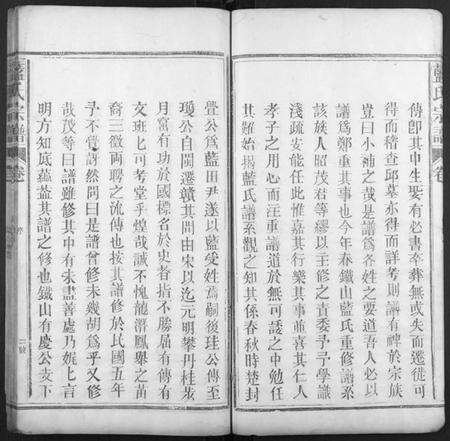 藍氏宗譜
卷
傳卽其中生娶有必書卒葬無或失而遷徙可
得而稽查邱墓亦得而詳考則譜有裨於宗族
豈曰小補之哉是譜爲各姓之要道吾人必以
譜爲鄭重其事也今年春鐵山藍氏重修譜系
該族人昭茂君等繆以主修之責委予予學識
淺疏安能任此惟嘉其行樂其事並喜其仁人
孝子之用心而注重譜道於無可諉之中勉任
其賍始揚藍氏譜系觀之知其係春秋時楚封
亹公爲藍田尹遂以藍受姓爲嗣後珪公傳至
瓊公自閩遷贛其間由宋以迄元明攀丹桂茱
月當有功於國標名於史者指不勝屈有傳有
文班匕可考堂乎煌哉誠不愧龍潛鳳舉之苗
裔三徵兩聘之流傳也按其譜修於民國五年
予不覺訝然問曰是譜曾修未幾胡爲乎又修
哉茂等曰譜雖修其中有未盡善處乃娓匕言
明方知底蘊葢其譜之修也鐵山有慶公支下
藍氏宗譜
卷
序